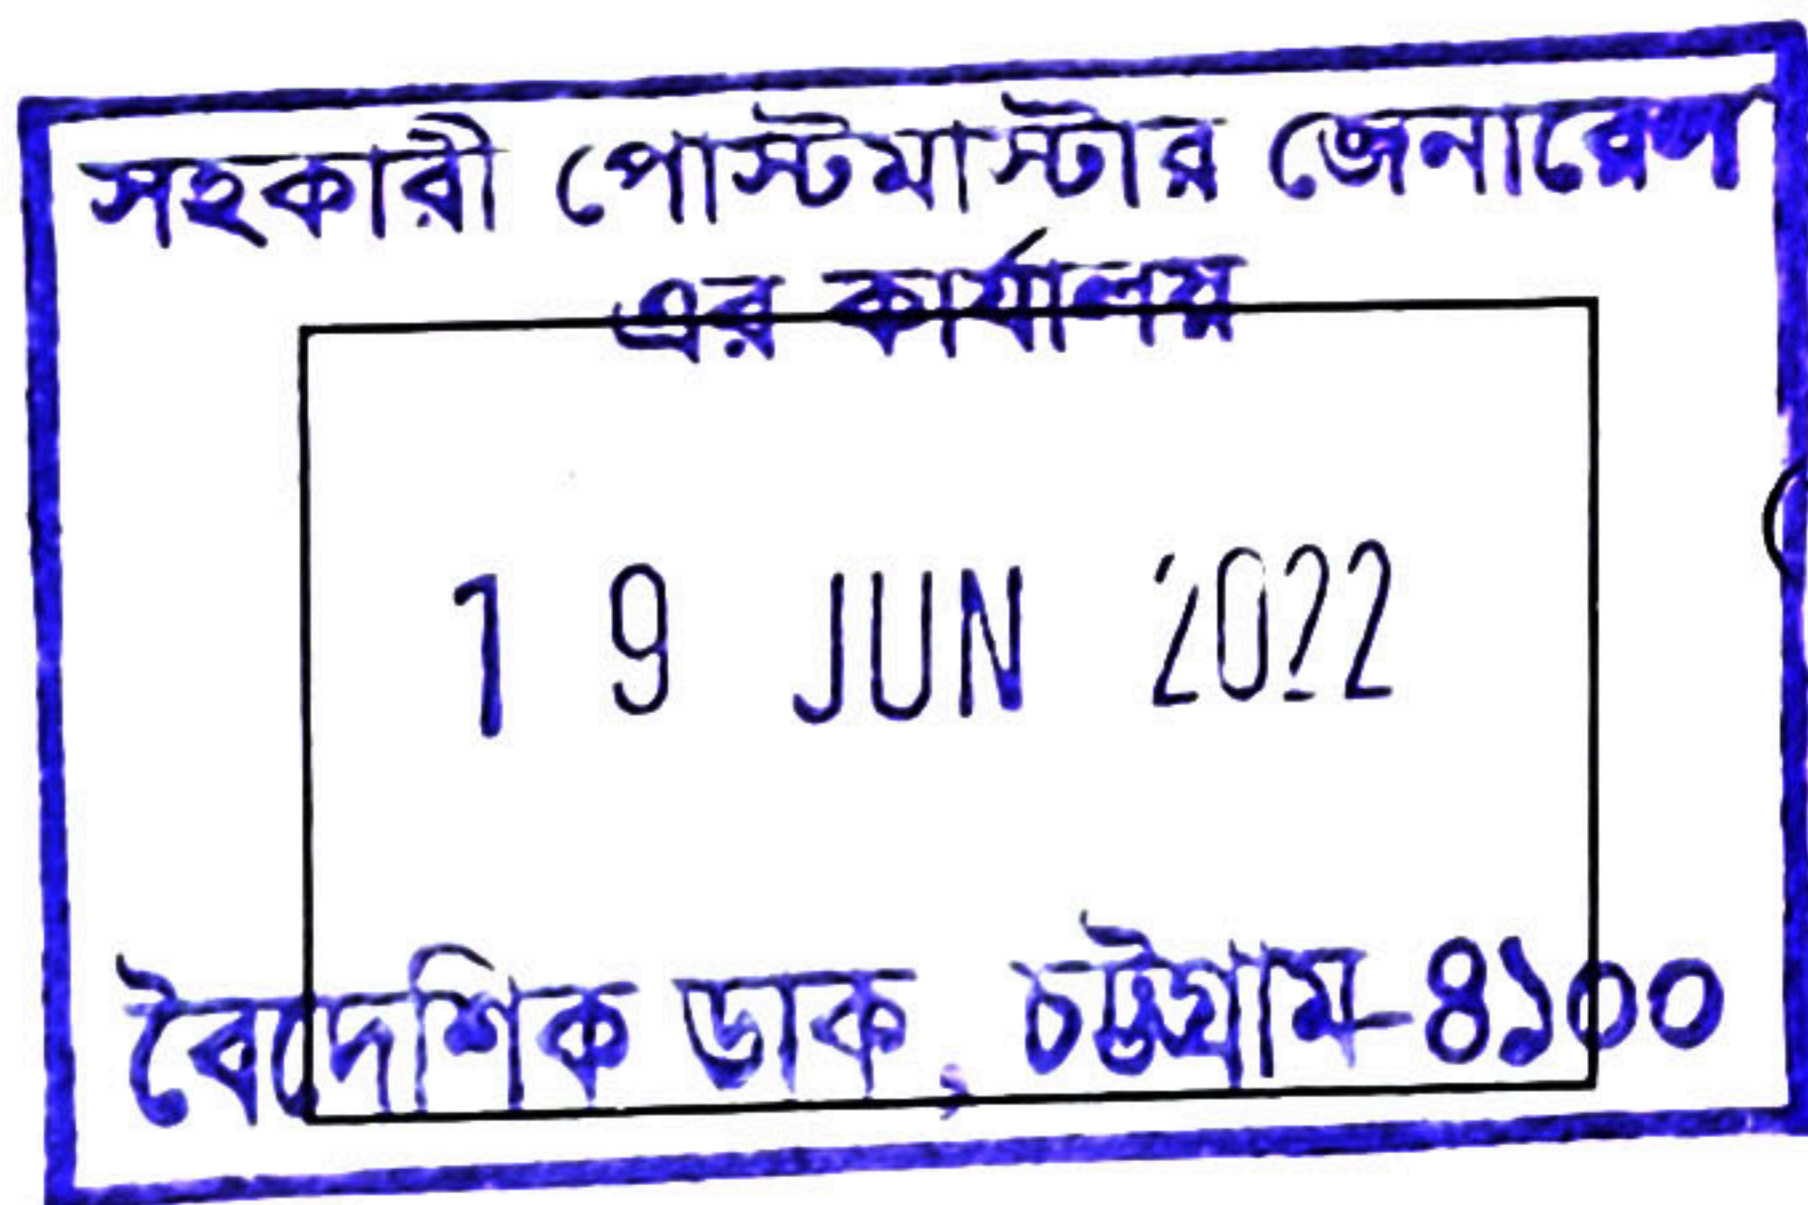 সহকারী পোস্টমাস্টার জেনারেল
এর কার্যালয়
19 JUN 2022
বৈদেশিক ডাক, চট্টগ্রাম-৪১০০